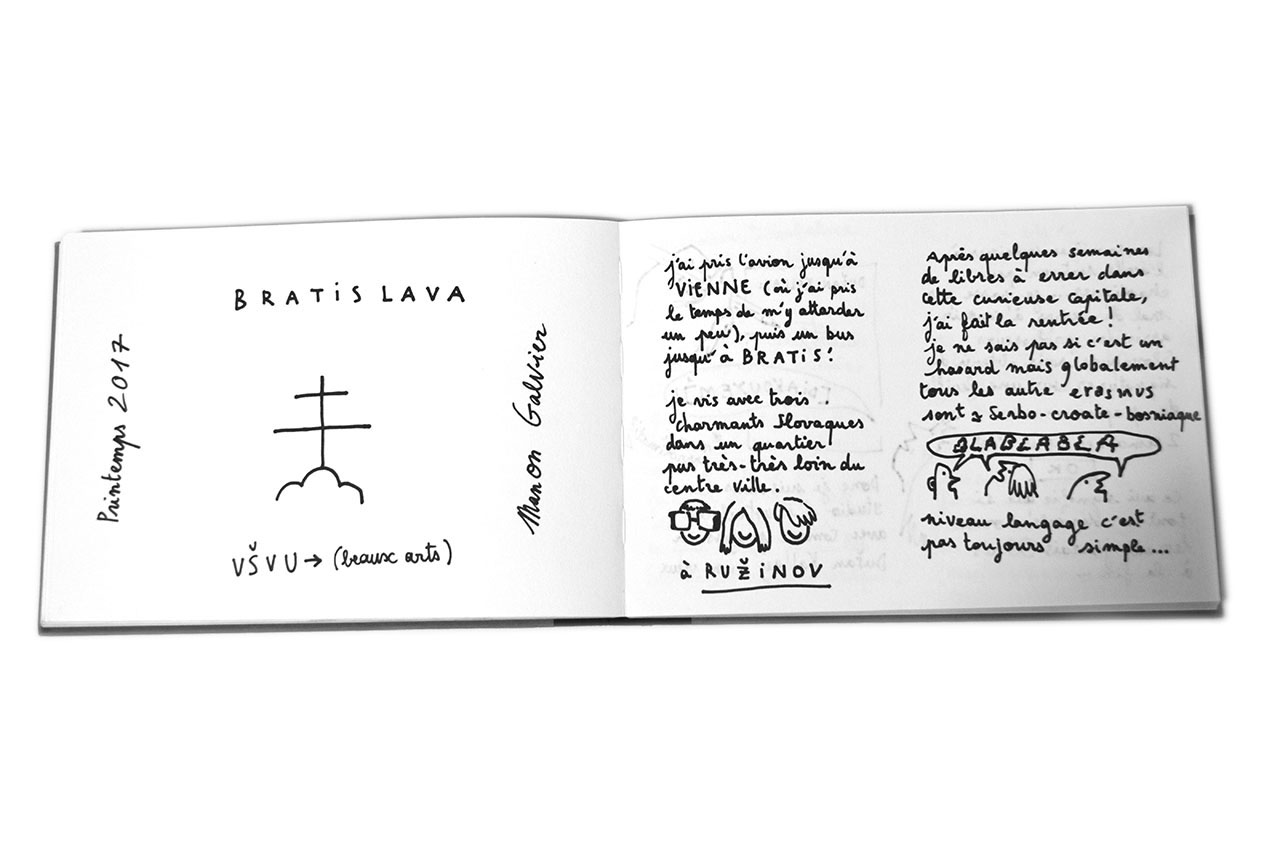 BRATISLAVA
Printemps 2017
Manon Galvier
VŠVU → (beaux arts)
j'ai pris l'avion jusqu'à
VIENNE (où j'ai pris
le temps de m'y attarder
un peu), puis un bus
jusqu'à BRATIS!
je vis avec trois
charmants Slovaques
dans un quartier
pas très-très loin du
centre ville.
à RUŽINOV
Après quelques semaines
de libres à errer dans
cette curieuse capitale,
j'ai fait la rentrée!
je ne sais pas si c'est un
hasard mais globalement
tous les autre erasmus
sont Serbo-croate-bosniaque
BLABLABLA
niveau langage c'est
pas toujours simple...